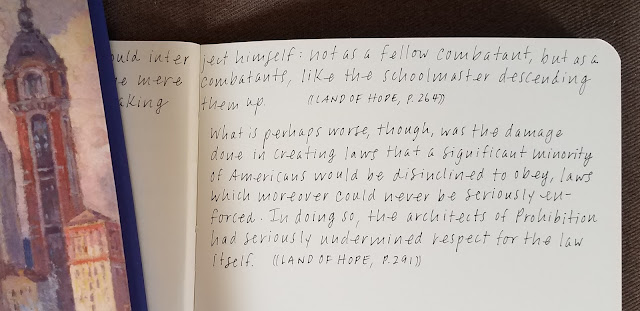 ould interject himself: not as a fellow combatant, but as a
e mere combatants, like the schoolmaster descending
aking them up. ((LAND OF HOPE, P. 264))
What is perhaps worse, though, was the damage
done in creating laws that a significant minority
of Americans would be disinclined to obey, laws
which moreover could never be seriously en-
forced. In doing so, the architects of Prohibition
had seriously undermined respect for the law
itself. ((LAND OF HOPE, P. 291))